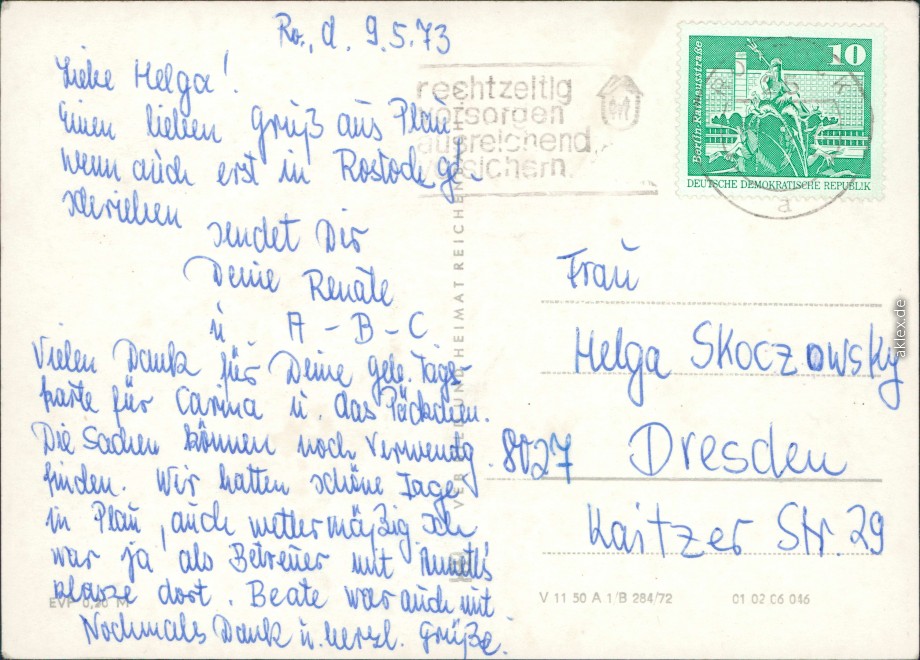 Ro., d. 9.5.73
Liebe Helga!
Einen lieben Gruß aus Plau
wenn auch erst in Rostock ge-
schrieben
sendet Dir
Deine Renate
u A - B - C
Vielen Dank für Deine gel. Tages-
karte für Carina u. das Päckchen.
Die Sachen können noch Verwendg.
finden. Wir hatten schöne Tage
in Plau, auch wettermäßig. Ich
war ja als Betreuer mit
klasse dort. Beate war auch mit
Nochmals Dank u. herzl. Grüße.
rechtzeitig
vorsorgen
ausreichend
versichern
10
Berlin, Rathausstraße
DEUTSCHE DEMOKRATISCHE REPUBLIK
Frau
Helga Skoczowsky
8027 Dresden
Kaitzer Str. 29
EVP 0,20 M
V 11 50 A 1/B 284/72 01 02 06 046
aklex.de